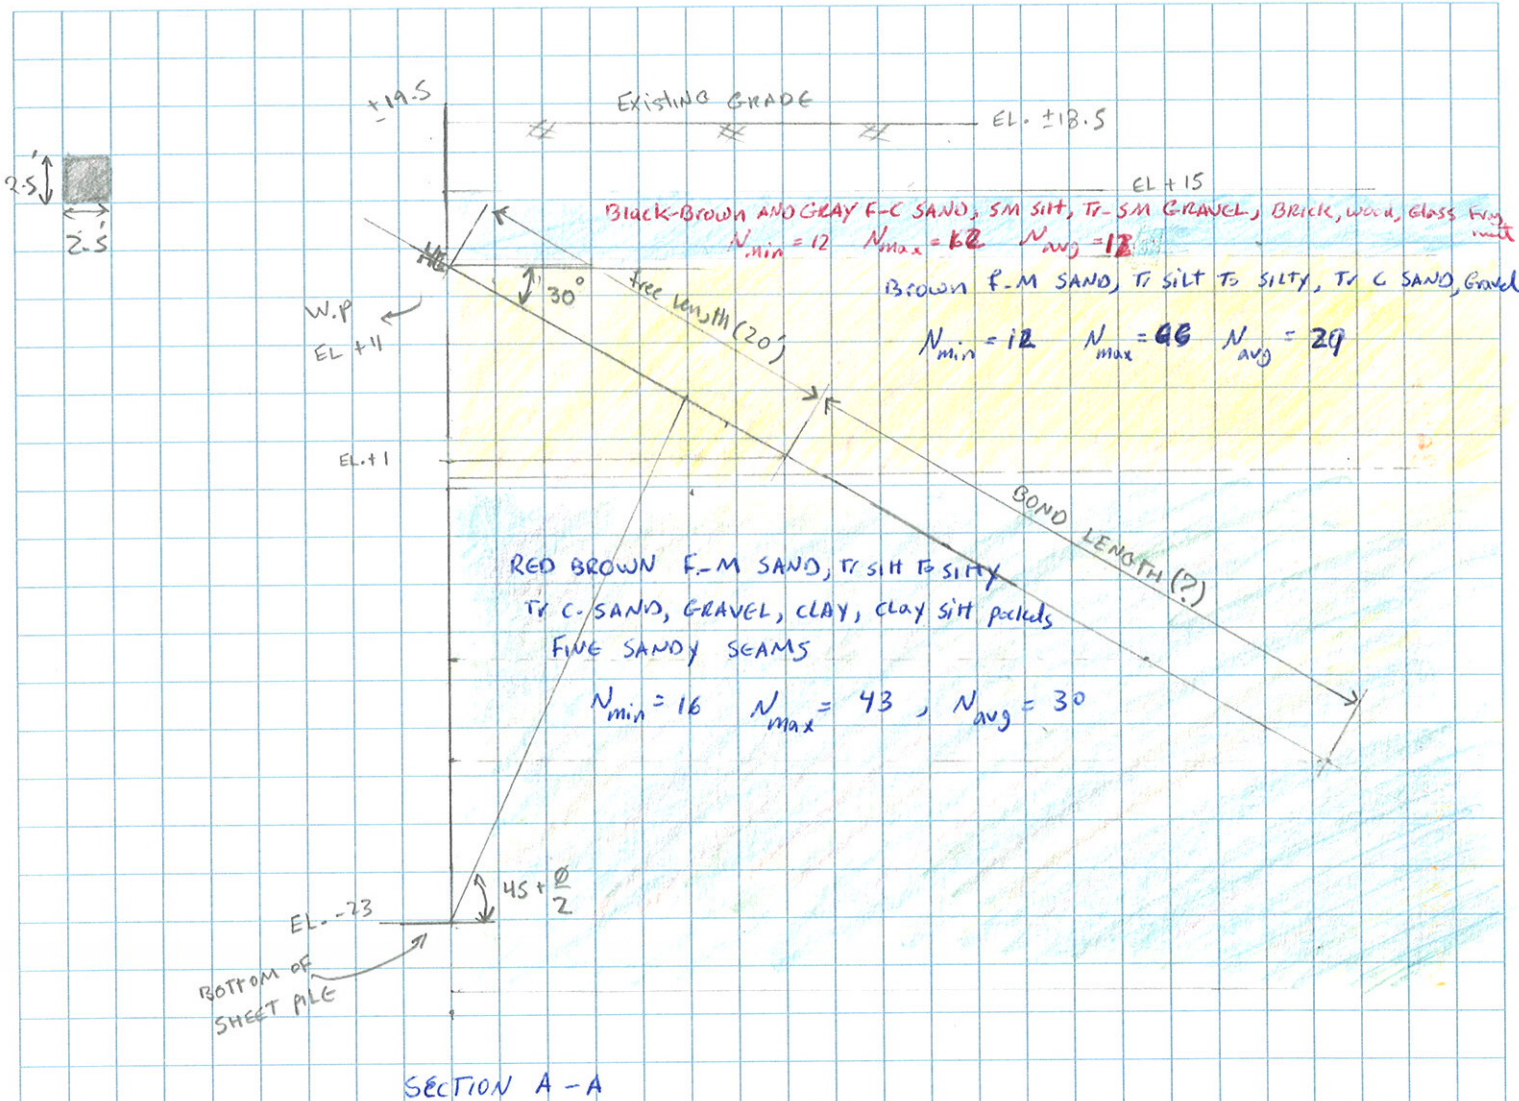 ± 19.5
EXISTING GRADE
EL. ±18.5
2.5'
2.5'
EL +15
Black-Brown AND GRAY F-C SAND, SM SILT, Tr-SM GRAVEL, Brick, wood, Glass
Nmin = 12 Nmax = Navg =
Brown F-M SAND, Tr SILT TO SILTY, Tr C SAND, Gravel
30°
free length (20')
W.P
EL +11
Nmin = 12 Nmax = 66 Navg = 29
EL.+1
BOND LENGTH (?)
RED BROWN F-M SAND, Tr Silt To Silty
Tr C. SAND, GRAVEL, CLAY, Clay silt pockets
FINE SANDY SEAMS
Nmin = 16 Nmax = 43 , Navg = 30
45 + ø/2
EL. -23
BOTTOM OF
SHEET PILE
SECTION A - A